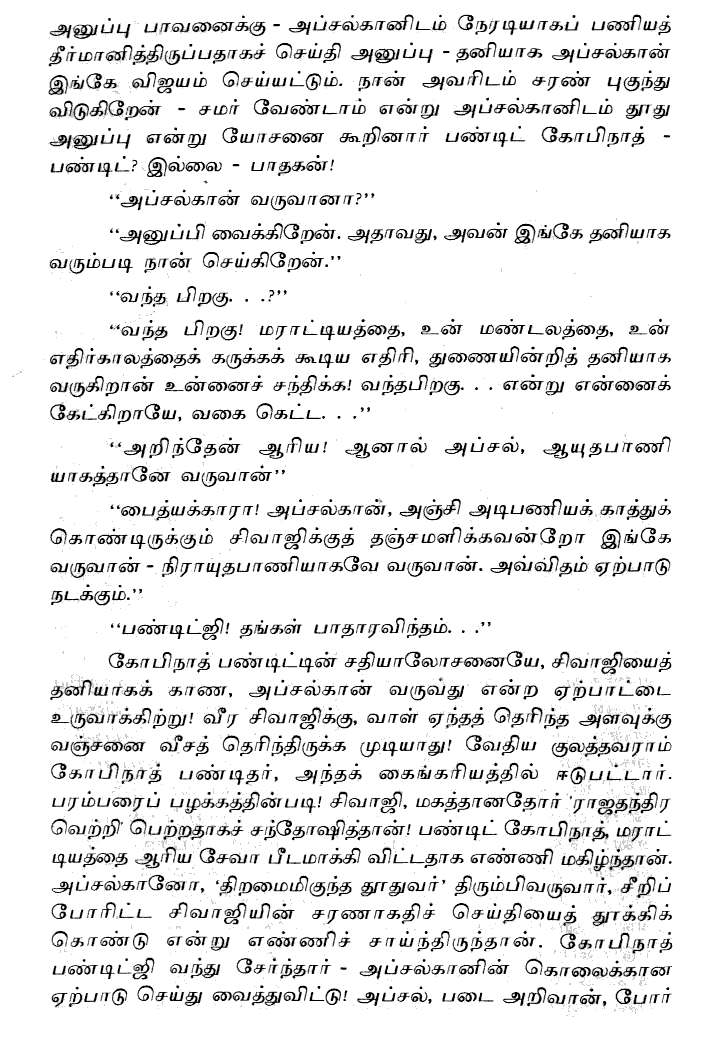 அனுப்பு பாவனைக்கு - அப்சல்கானிடம் நேரடியாகப் பணியத்
தீர்மானித்திருப்பதாகச் செய்தி அனுப்பு - தனியாக அப்சல்கான்
இங்கே விஜயம் செய்யட்டும். நான் அவரிடம் சரண் புகுந்து
விடுகிறேன் - சமர் வேண்டாம் என்று அப்சல்கானிடம் தூது
அனுப்பு என்று யோசனை கூறினார் பண்டிட் கோபிநாத் -
பண்டிட்? இல்லை - பாதகன்!
‘‘அப்சல்கான் வருவானா?’’
‘‘அனுப்பி வைக்கிறேன். அதாவது, அவன் இங்கே தனியாக
வரும்படி நான் செய்கிறேன்.’’
‘‘வந்த பிறகு. . .?’’
‘‘வந்த பிறகு! மராட்டியத்தை, உன் மண்டலத்தை, உன்
எதிர்காலத்தைக் கருக்கக் கூடிய எதிரி, துணையின்றித் தனியாக
வருகிறான் உன்னைச் சந்திக்க! வந்தபிறகு. . . என்று என்னைக்
கேட்கிறாயே, வகை கெட்ட. . .’’
‘‘அறிந்தேன் ஆரிய! ஆனால் அப்சல், ஆயுதபாணி
யாகத்தானே வருவான்’’
‘‘பைத்யக்காரா! அப்சல்கான், அஞ்சி அடிபணியக் காத்துக்
கொண்டிருக்கும் சிவாஜிக்குத் தஞ்சமளிக்கவன்றோ இங்கே
வருவான் - நிராயுதபாணியாகவே வருவான். அவ்விதம் ஏற்பாடு
நடக்கும்.’’
‘‘பண்டிட்ஜி! தங்கள் பாதாரவிந்தம். . .’’
கோபிநாத் பண்டிட்டின் சதியாலோசனையே, சிவாஜியைத்
தனியாகக் காண, அப்சல்கான் வருவது என்ற ஏற்பாட்டை
உருவாக்கிற்று! வீர சிவாஜிக்கு, வாள் ஏந்தத் தெரிந்த அளவுக்கு
வஞ்சனை வீசத் தெரிந்திருக்க முடியாது! வேதிய குலத்தவராம்
கோபிநாத் பண்டிதர், அந்தக் கைங்கரியத்தில் ஈடுபட்டார்.
பரம்பரைப் பழக்கத்தின்படி! சிவாஜி, மகத்தானதோர் ‘ராஜதந்திர
வெற்றி’ பெற்றதாகச் சந்தோஷித்தான்! பண்டிட் கோபிநாத், மராட்
டியத்தை ஆரிய சேவா பீடமாக்கி விட்டதாக எண்ணி மகிழ்ந்தான்.
அப்சல்கானோ, ‘திறமைமிகுந்த தூதுவர்’ திரும்பிவருவார், சீறிப்
போரிட்ட சிவாஜியின் சரணாகதிச் செய்தியைத் தூக்கிக்
கொண்டு என்று எண்ணிச் சாய்ந்திருந்தான். கோபிநாத்
பண்டிட்ஜி வந்து சேர்ந்தார் - அப்சல்கானின் கொலைக்கான
ஏற்பாடு செய்து வைத்துவிட்டு! அப்சல், படை அறிவான், போர்